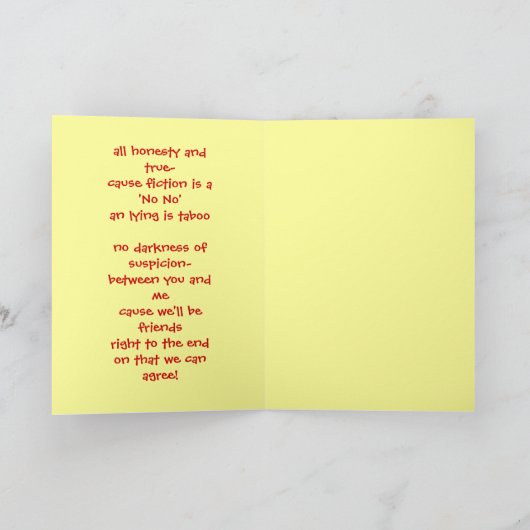 all honesty and
true-
cause fiction is a
'No No'
an lying is taboo

no darkness of
suspicion-
between you and
me
cause we'll be
friends
right to the end
on that we can
agree!